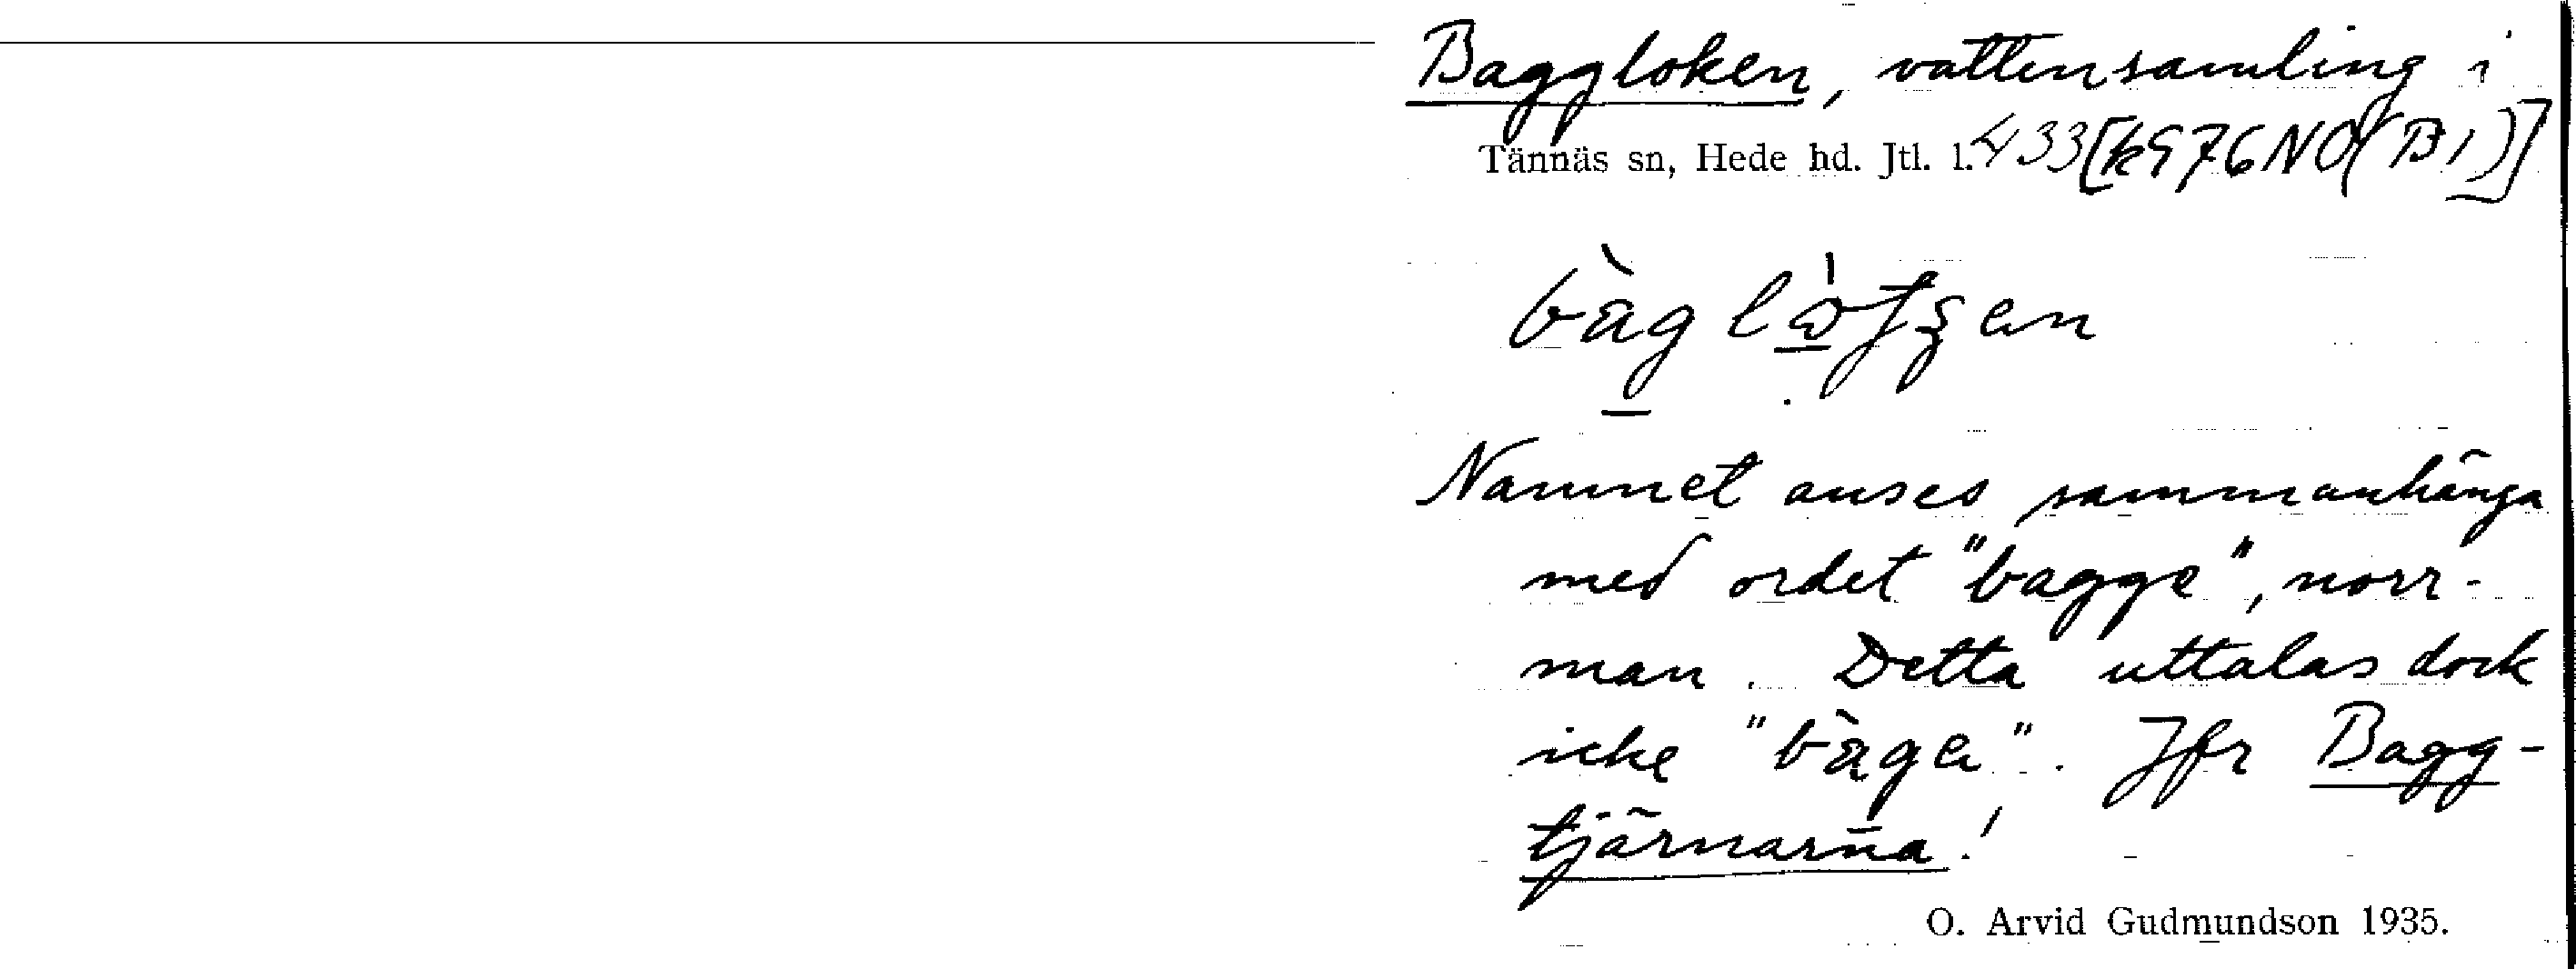 Baggloken, vattensamling i
Tännäs sn, Hede hd. Jtl. l. 433 [k976NO(B1)]
Namnet anses sammanhänga
med ordet "bagge", norr-
man. Detta uttalas dock
icke "bàga". Jfr Bagg-
tjärnarna!
O. Arvid Gudmundson 1935.